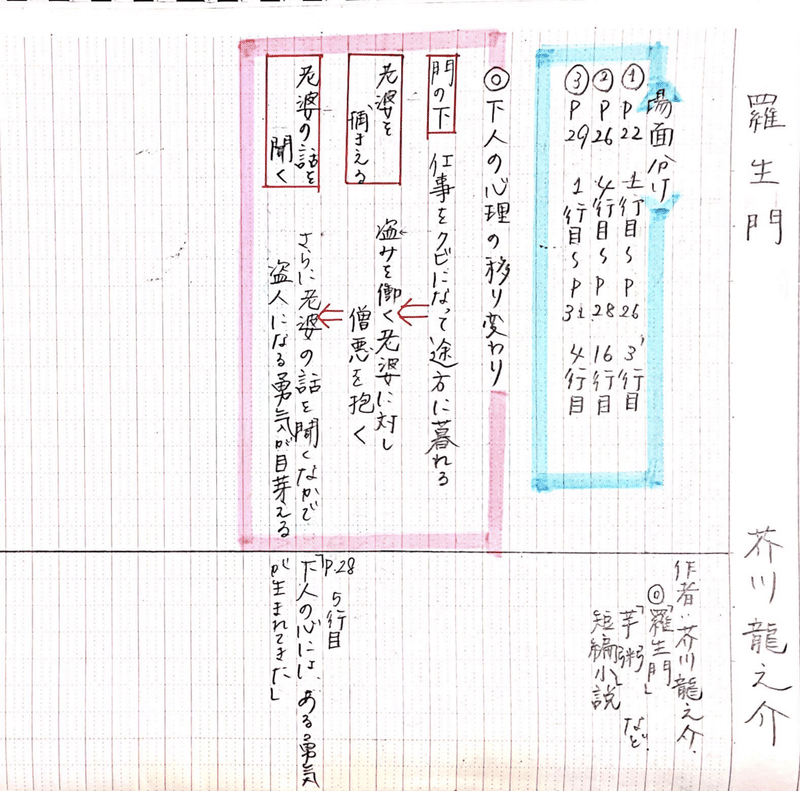 羅生門　芥川龍之介
場面分け
① P22 1行目〜P26 3行目
② P26 4行目〜P.28 16行目
③ P29 1行目〜P31 4行目
◎下人の心理の移り変わり
門の下　仕事をクビになって途方に暮れる
老婆を捕まえる　盗みを働く老婆に対し
僧悪を抱く
老婆の話を聞く　さらに老婆の話を聞くなかで
盗人になる勇気が目芽える
作者：芥川龍之介.
◎「羅生門」
「芋粥」など.
短編小説
P.28 5行目
「下人の心には、ある勇気
が生まれてきた」